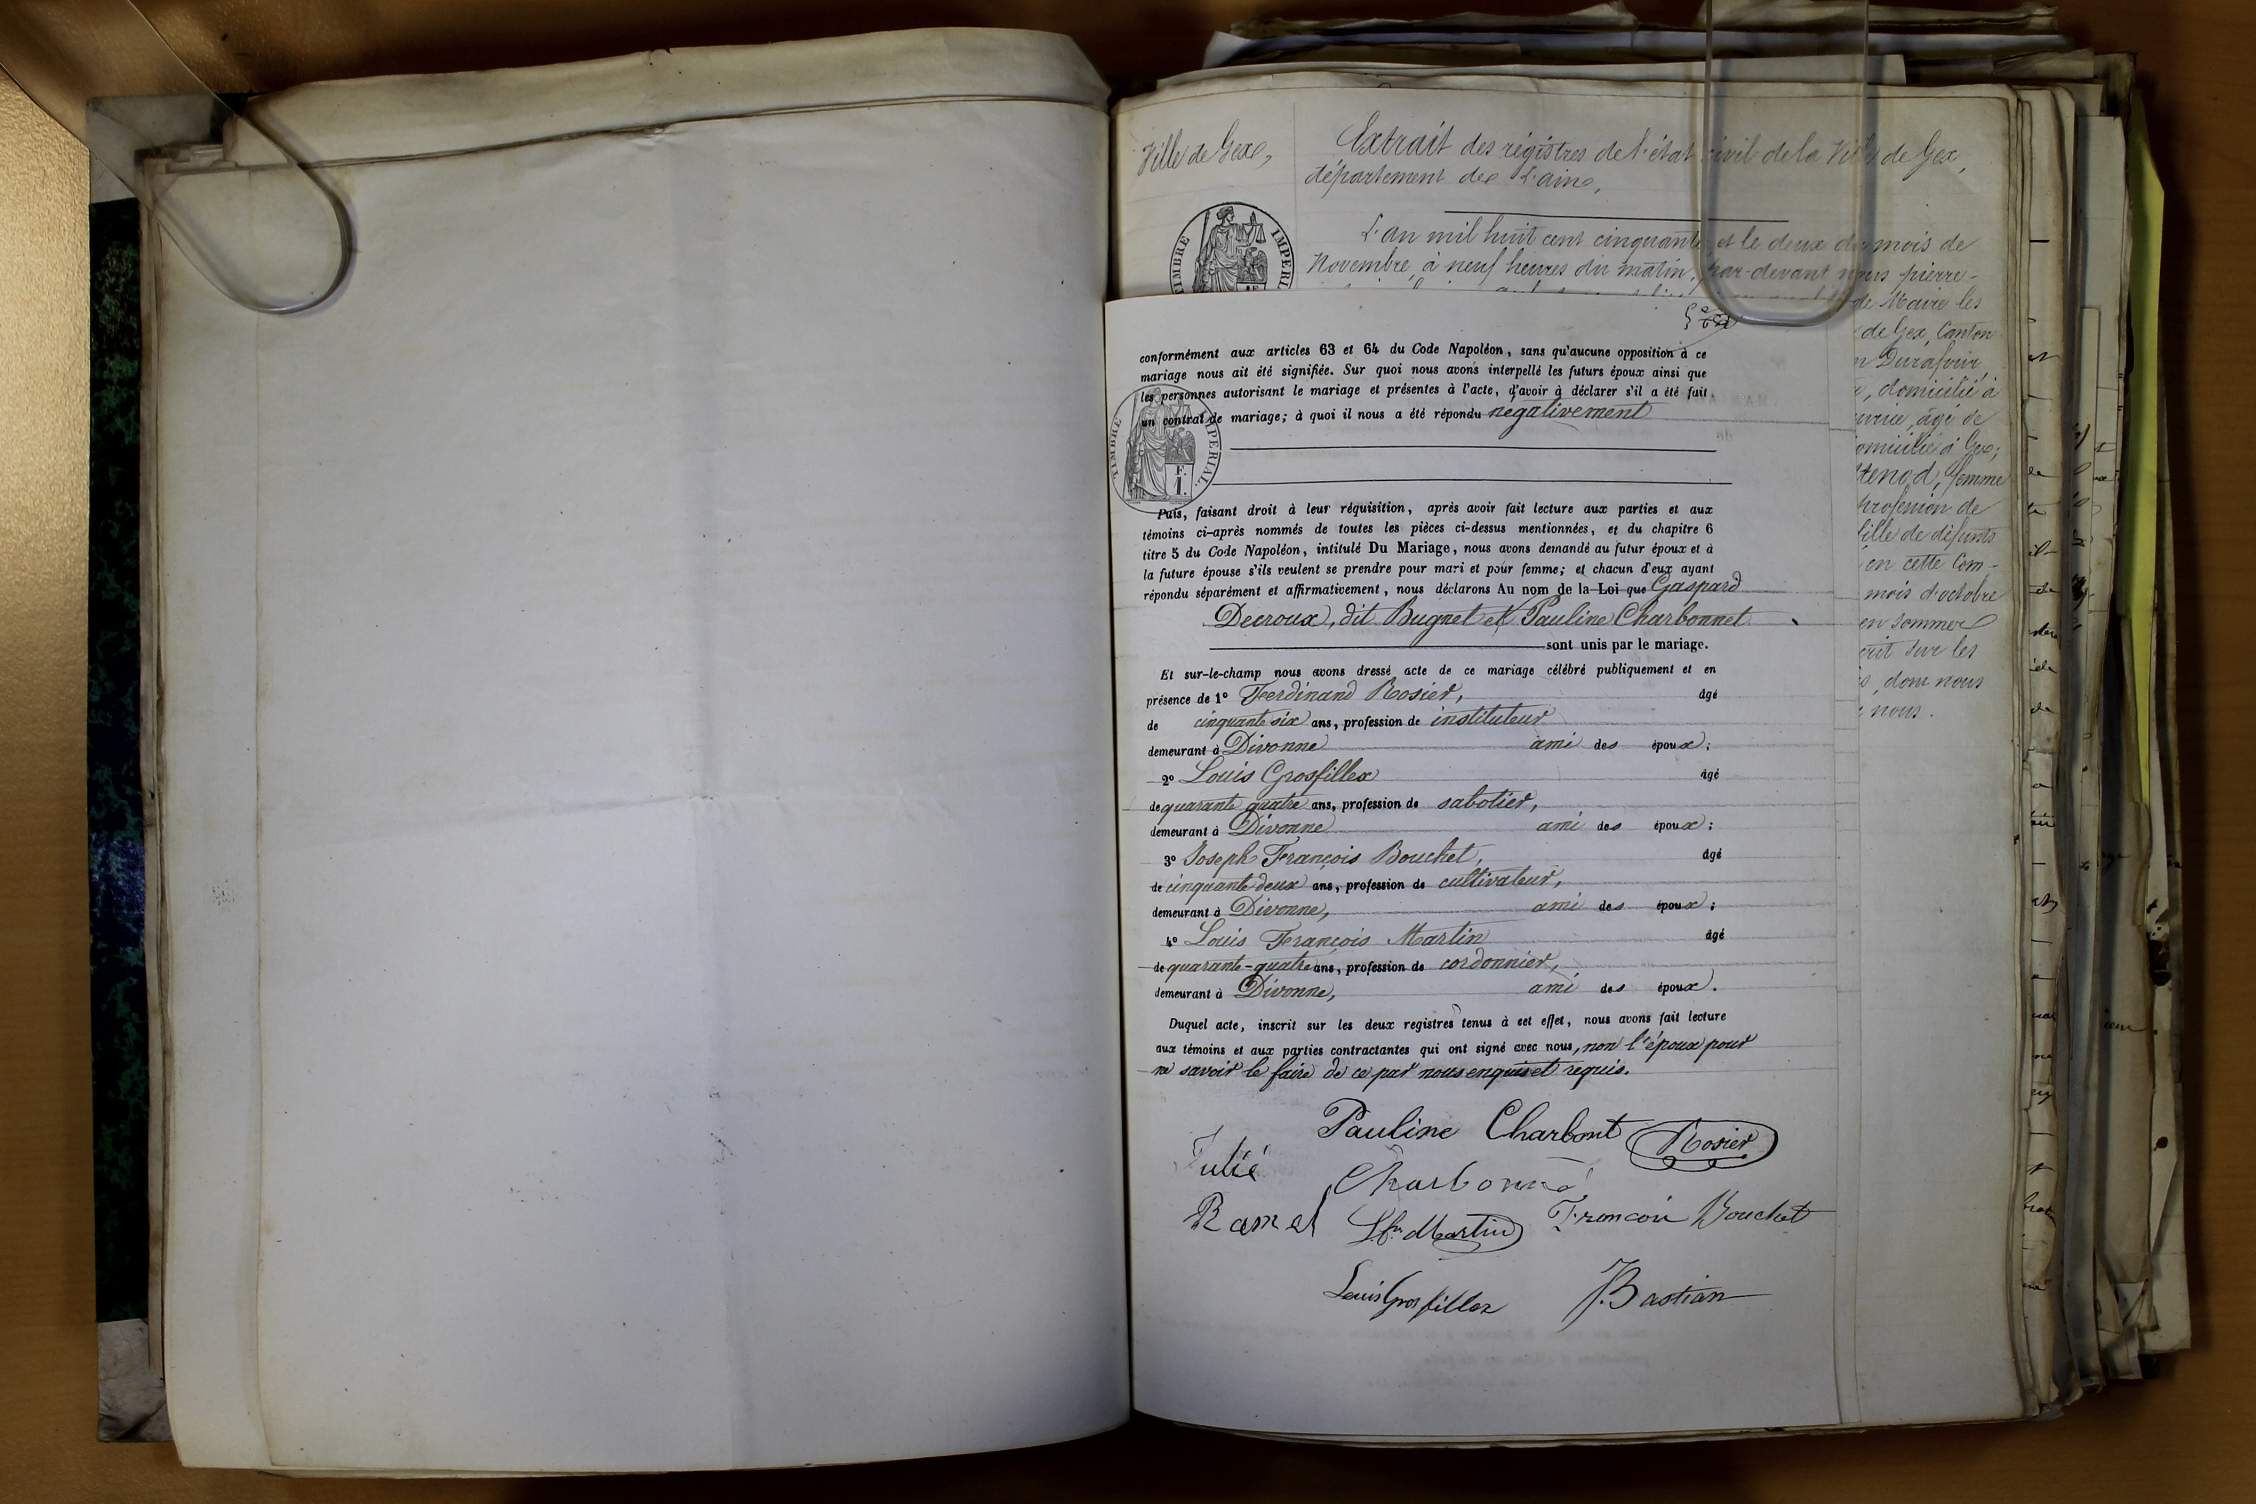 Ville de Gex,
Extrait des régistres de l'état civil de la Ville de Gex,
département de L'ain,
TIMBRE IMPERI
L'an mil huit cent cinquante et le deux du mois de
Novembre, à neuf heures du matin, par-devant nous pierre-
de Maire les
de Gex, Canton
Durafour
, domicilié à
, âgé de
omicilié à Gex;
tenod, femme
profession de
fille de défunts
en cette Com-
mois d'octobre
en sommes
crit sur les
, dont nous
nous.
conformément aux articles 63 et 64 du Code Napoléon, sans qu'aucune opposition à ce
mariage nous ait été signifiée. Sur quoi nous avons interpellé les futurs époux ainsi que
les personnes autorisant le mariage et présentes à l'acte, d'avoir à déclarer s'il a été fait
un contrat de mariage; à quoi il nous a été répondu négativement
TIMBRE IMPERIAL.
F. 1.
Puis, faisant droit à leur réquisition, après avoir fait lecture aux parties et aux
témoins ci-après nommés de toutes les pièces ci-dessus mentionnées, et du chapitre 6
titre 5 du Code Napoléon, intitulé Du Mariage, nous avons demandé au futur époux et à
la future épouse s'ils veulent se prendre pour mari et pour femme; et chacun d'eux ayant
répondu séparément et affirmativement, nous déclarons Au nom de la Loi que Gaspard
Decroux, dit Bugnet et Pauline Charbonnet
sont unis par le mariage.
Et sur-le-champ nous avons dressé acte de ce mariage célébré publiquement et en
présence de 1° Ferdinand Rosier, âgé
de cinquante six ans, profession de instituteur
demeurant à Divonne ami des époux;
2° Louis Grosfillex âgé
de quarante quatre ans, profession de sabotier,
demeurant à Divonne ami des époux;
3° Joseph François Bouchet, âgé
de cinquante deux ans, profession de cultivateur,
demeurant à Divonne, ami des époux;
4° Louis François Martin âgé
de quarante-quatre ans, profession de cordonnier,
demeurant à Divonne, ami des époux.
Duquel acte, inscrit sur les deux registres tenus à cet effet, nous avons fait lecture
aux témoins et aux parties contractantes qui ont signé avec nous, non l'époux pour
ne savoir le faire de ce par nous enquis et requis.
Pauline Charbont Rosier
Julie Charbonné
Ramel L.fs. Martin François Bouchet
Louis Grosfillex J. Bastian